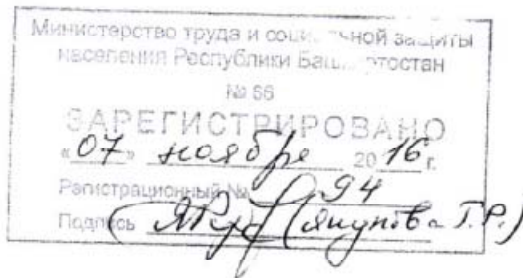 Министерство труда и социальной защиты
населения Республики Башкортостан
№ 66
ЗАРЕГИСТРИРОВАНО
«07» ноября 2016 г.
Регистрационный № 94
Подпись (Якупова Г.Р.)